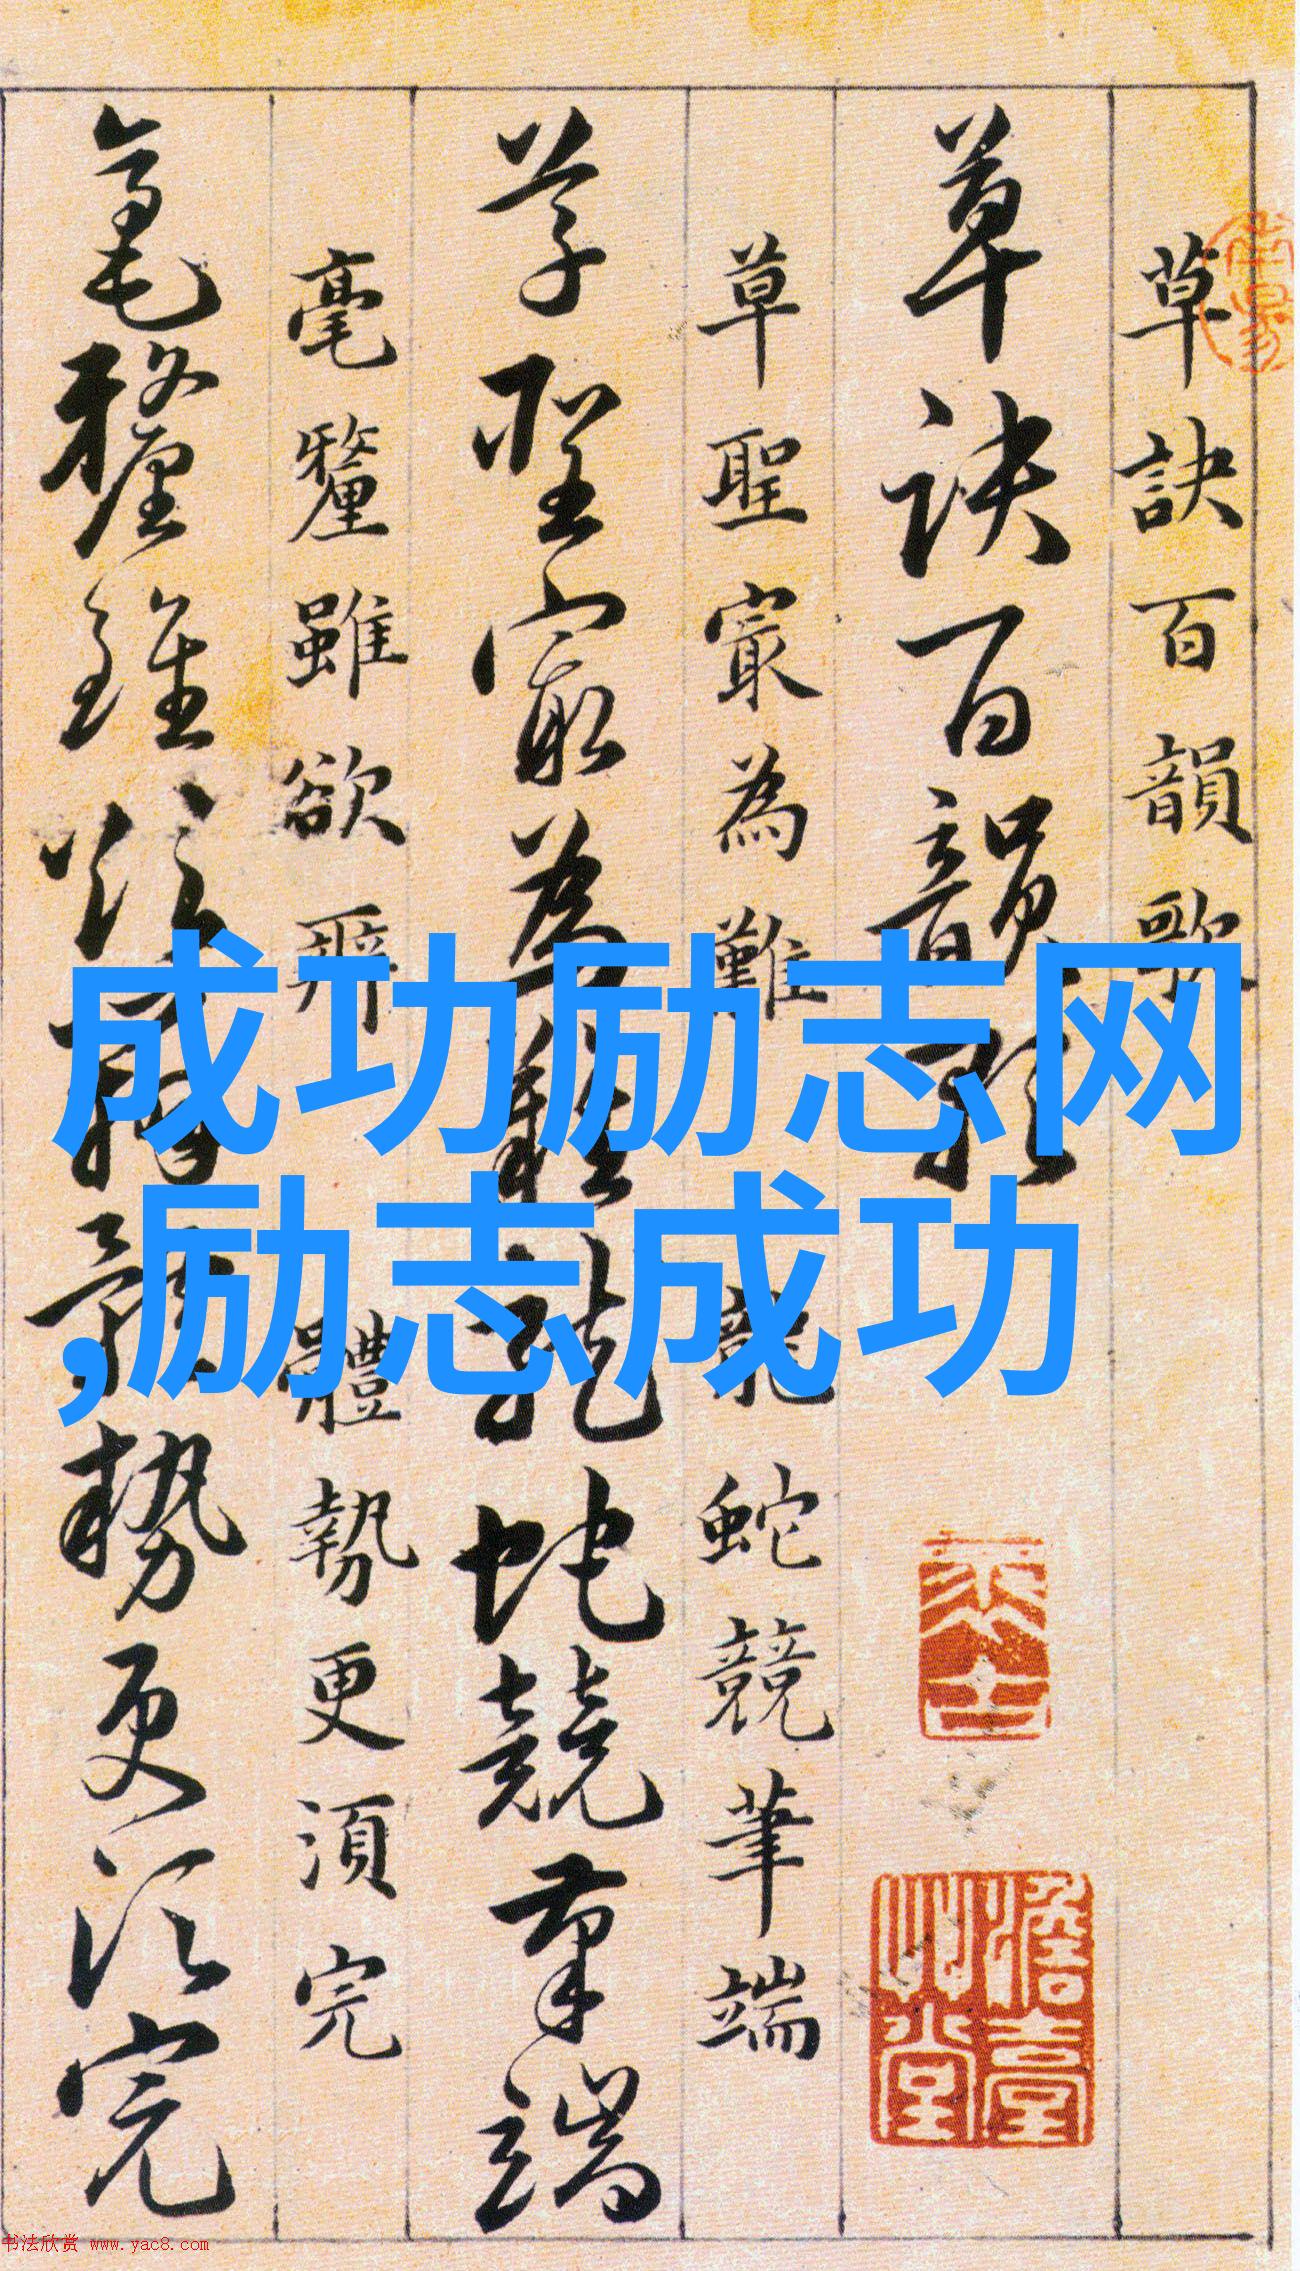 草訣百韻歌
草訣百韻歌
草聖冣為難 龍蛇競筆端
草聖冣為難龍蛇競筆端
毫釐雖欲辨 體勢更須完
毫釐雖欲辨體勢更須完
成功励志网
,励志成功
书法欣赏 www.yac8.com